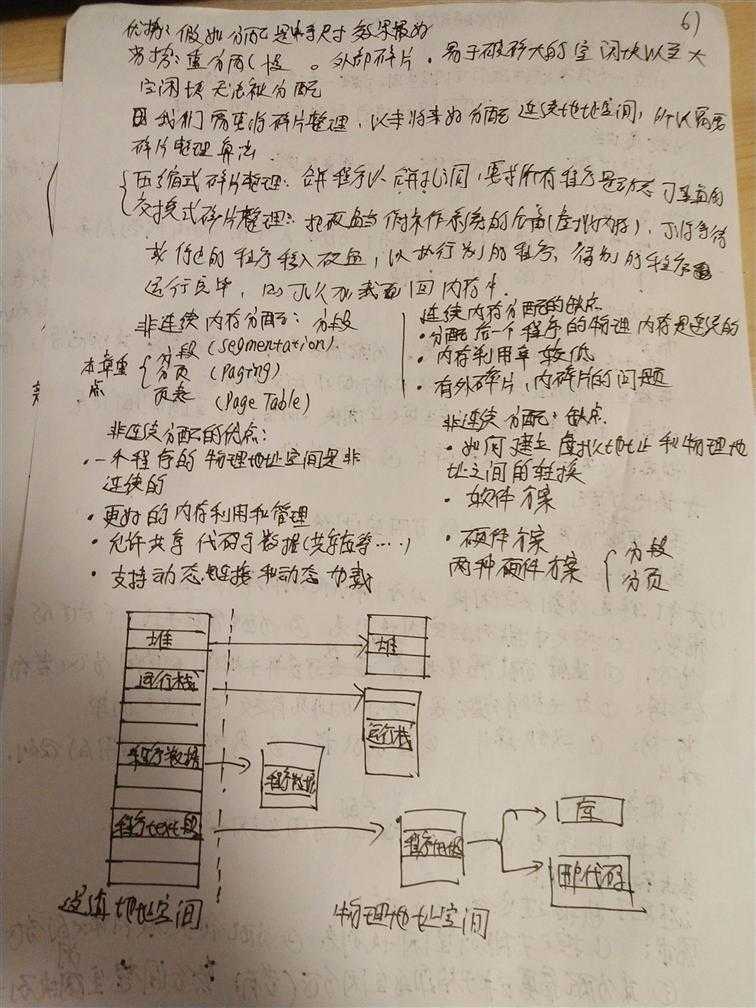 6)
优势: 假如分配是中等尺寸效果最好
劣势: 重分配慢 。外部碎片 . 易于破碎大的空闲块以至大
空闲块无法被分配
因我们需要将碎片整理, 以来将来好分配连续地址空间, 所以需要
碎片整理算法
压缩式碎片整理: 合并程序以合并孔间, 要求所有程序是动态可重置的
交换式碎片整理: 把硬盘当做操作系统的后备(虚拟内存),
的程序移入硬盘, 以执行别的程序, 等别的程序
运行完毕, 内存中.
非连续内存分配: 分段
本章重点
分段 (Segmentation).
分页 (Paging)
页表 (Page Table)
连续内存分配的缺点
· 分配给一个程序的物理内存是连续的
· 内存利用率较低
· 有外碎片, 内碎片的问题
非连续分配的优点:
· 一个程序的物理地址空间是非
连续的
· 更好的内存利用和管理
· 允许共享代码与数据(共享库等....)
· 支持动态链接和动态加载
非连续分配: 缺点.
· 如何建立虚拟地址和物理地
址之间的转换
· 软件方案
· 硬件方案
两种硬件方案
分段
分页
堆
堆
运行栈
运行栈
程序数据
程序数据
程序text段
程序
库
用户代码
逻辑地址空间
物理地址空间